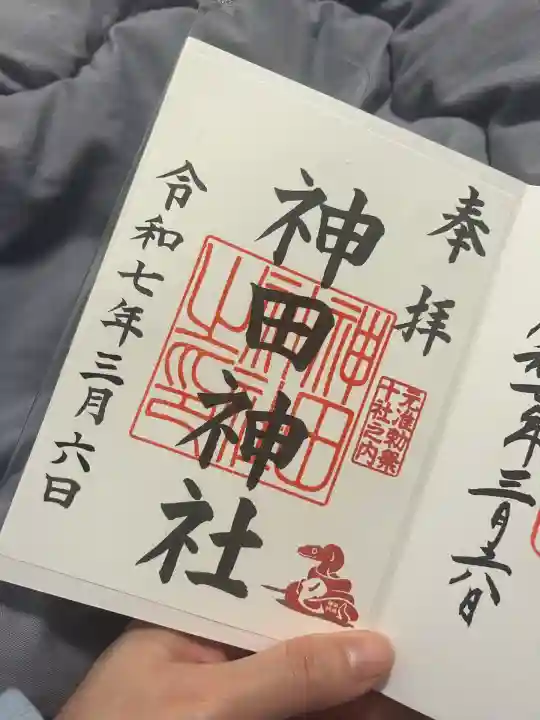 奉拝
神田神社
令和七年三月六日
神田神社之印
元准勅祭
十社之内
七年三月六日